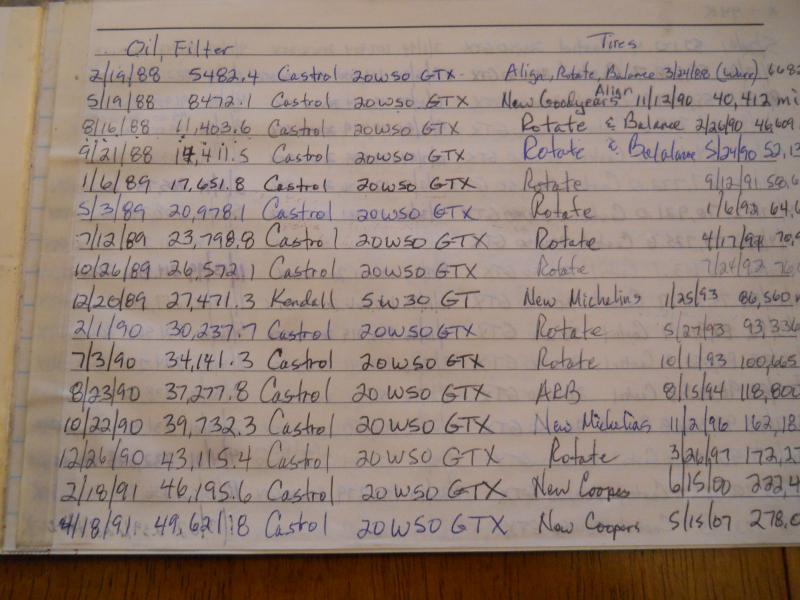 Oil, Filter Tires
2/19/88 5482.4 Castrol 20W50 GTX Align, Rotate, Balance 3/24/88 (Warr) 6682
5/19/88 8472.1 Castrol 20W50 GTX New Goodyears Align 11/12/90 40,412 mi
8/16/88 11,403.6 Castrol 20W50 GTX Rotate & Balance 2/26/90 46,609
9/21/88 14,411.5 Castrol 20W50 GTX Rotate & Balalance 5/24/90 52,13
1/6/89 17,651.8 Castrol 20W50 GTX Rotate 9/12/91 58,6
5/3/89 20,978.1 Castrol 20W50 GTX Rotate 1/6/92 64,6
7/12/89 23,798.8 Castrol 20W50 GTX Rotate 4/17/92 70,9
10/26/89 26,572.1 Castrol 20W50 GTX Rotate 7/24/92 76,
12/26/89 27,471.3 Kendall 5W30 GT New Michelins 1/25/93 86,560
2/1/90 30,237.7 Castrol 20W50 GTX Rotate 5/27/93 93,336
7/3/90 34,141.3 Castrol 20W50 GTX Rotate 10/1/93 100,665
8/23/90 37,277.8 Castrol 20W50 GTX ARB 8/15/94 118,800
10/22/90 39,732.3 Castrol 20W50 GTX New Michelins 11/2/96 162,18
12/26/90 43,115.4 Castrol 20W50 GTX Rotate 3/26/97 172,27
2/18/91 46,195.6 Castrol 20W50 GTX New Coopes 6/15/00 222,4
4/18/91 49,621.8 Castrol 20W50 GTX New Coopers 5/15/07 278,0